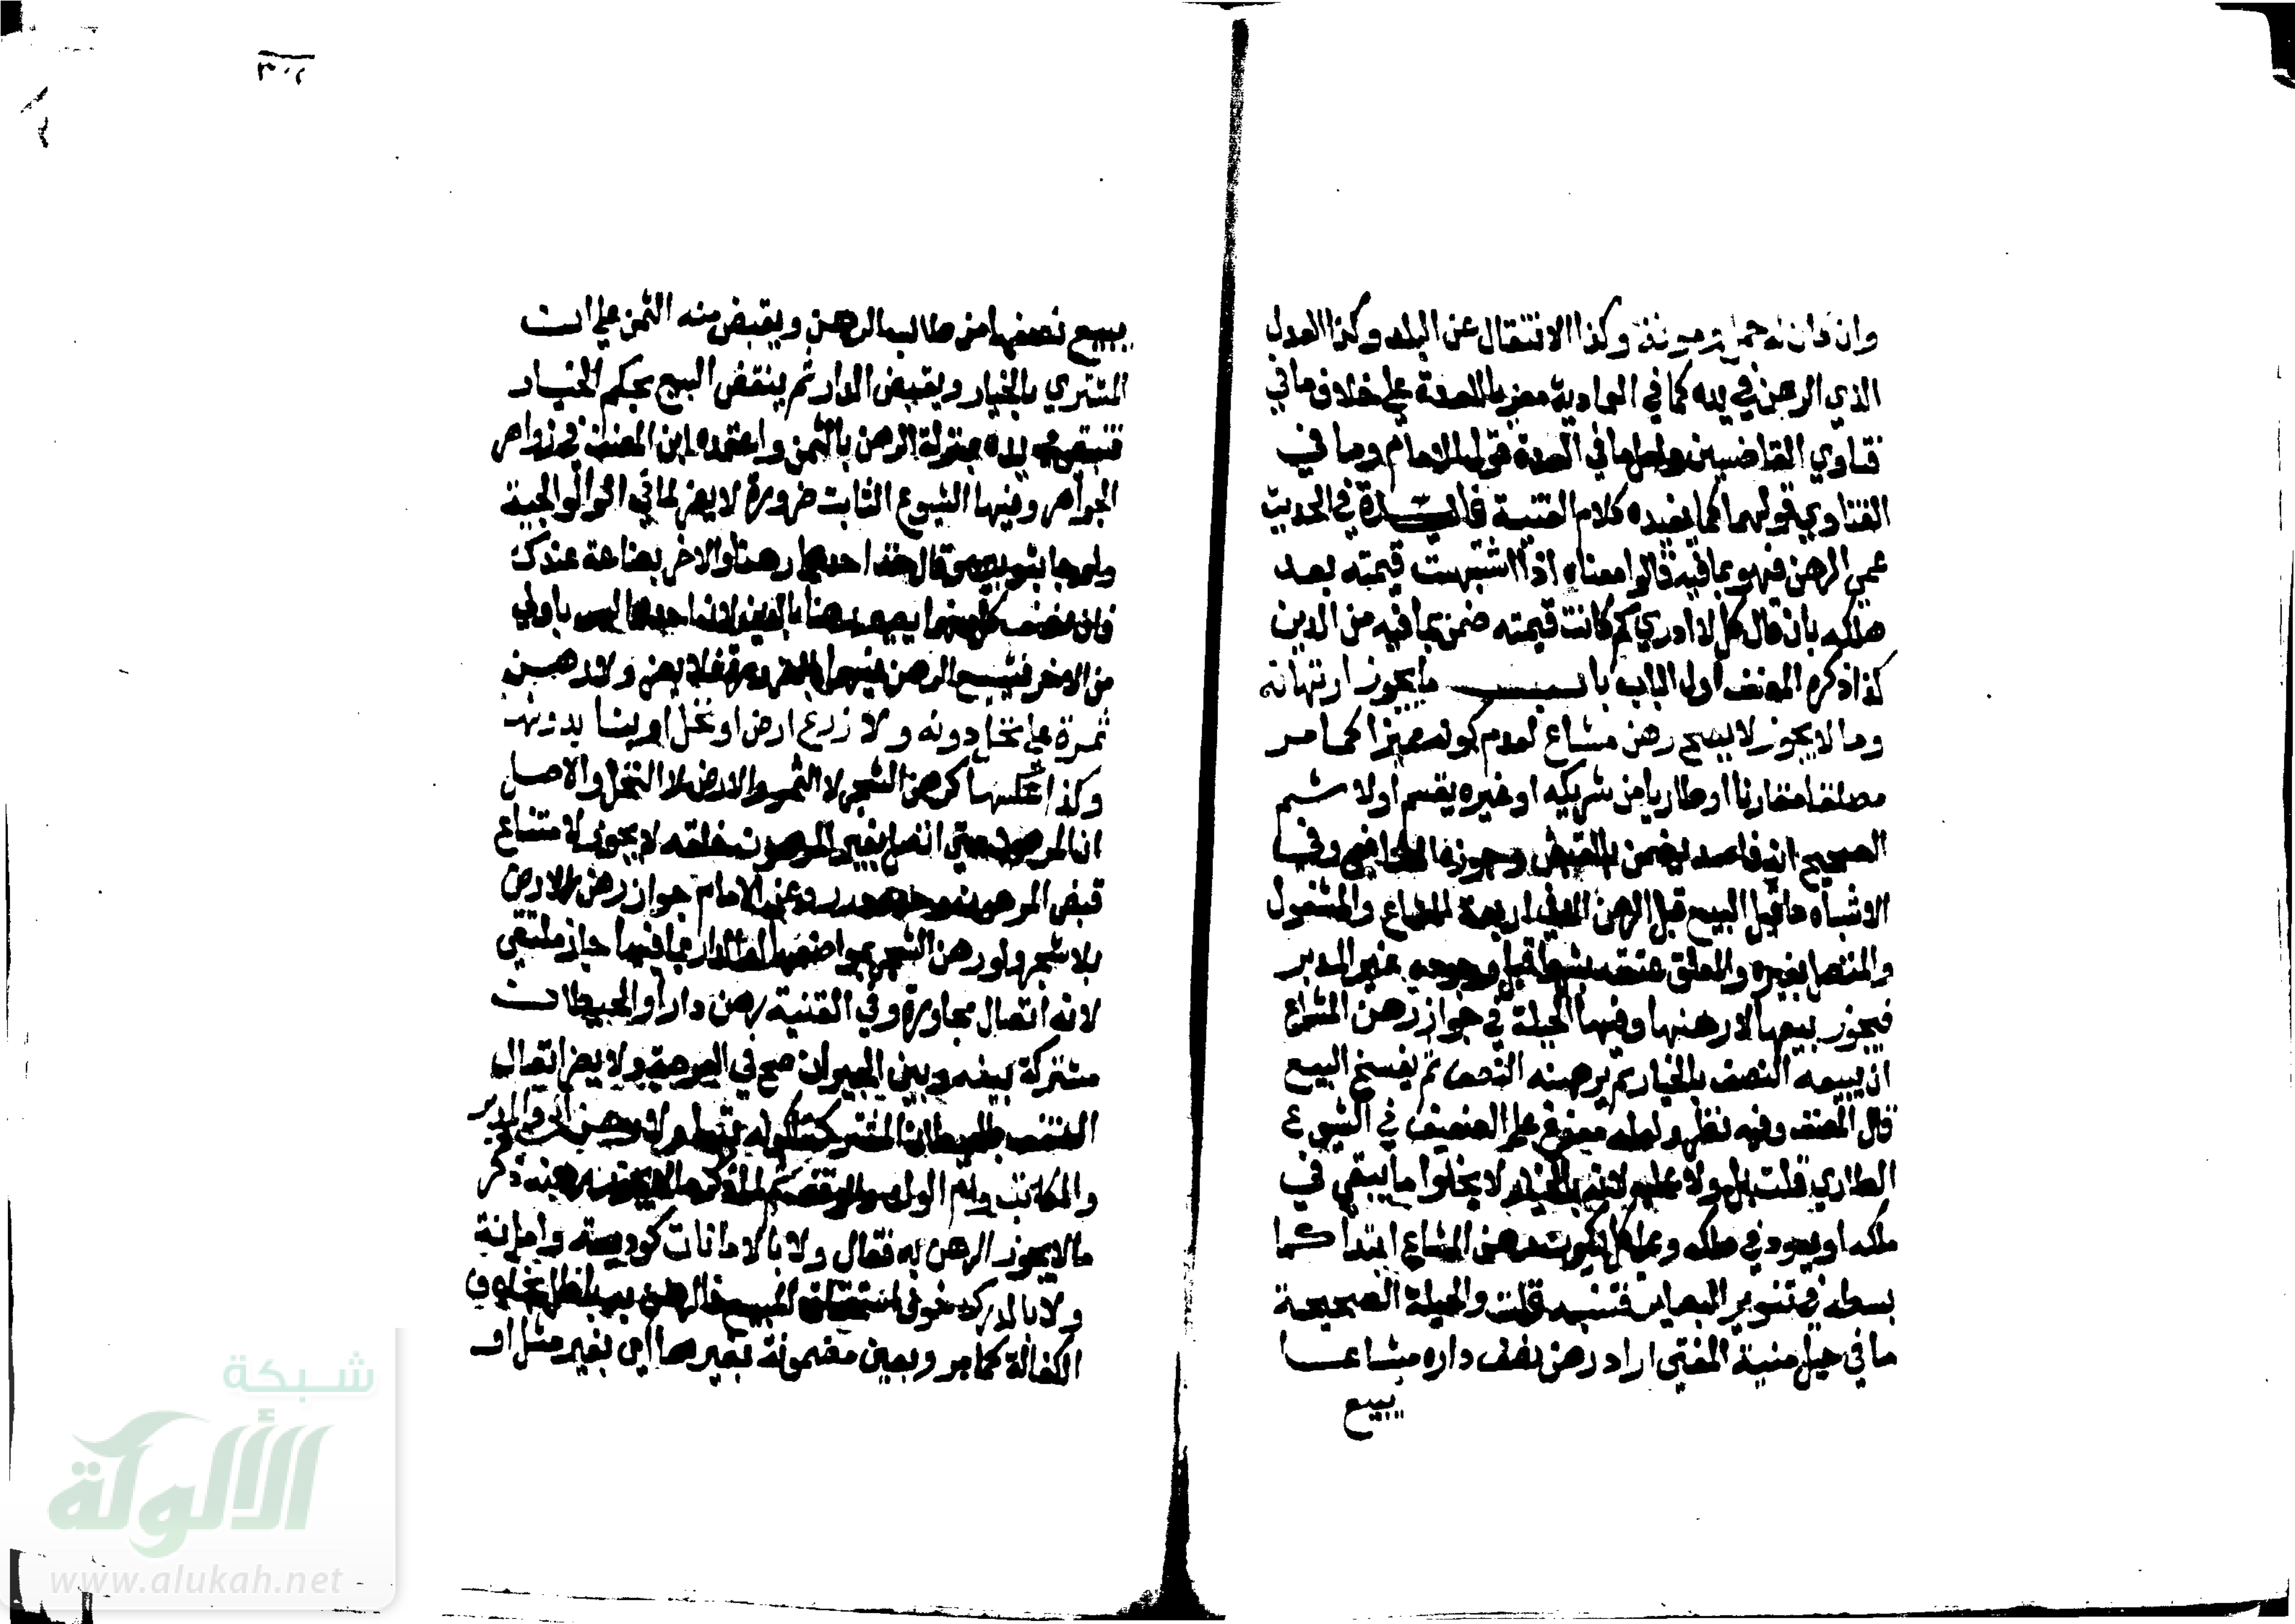 وان كان له حمل ومونة وكذا الانتقال عن البلد وكذا العدل
الذي الرهن في يده كما في العمادية معزيا للعدة على خلاف ما في
فتاوي القاضيين ولعل ما في العدة قول الامام وما في
الفتاوي قولهما كما يفيده كلام القنية فائدة في الحديث
عمي الرهن فهو بما فيه قالوا معناه اذا اشتبهت قيمته بعد
هلاكه بان قال كل لا ادري كم كانت قيمته ضمن بما فيه من الدين
كذا ذكره المصنف اول الباب باب ما يجوز ارتهانه
وما لا يجوز لا يصح رهن مشاع لعدم كونه مميزا كما مر
مطلقا مقارنا او طاريا من شريكه او غيره يقسم اولا ثم
الصحيح انه فاسد يضمن بالقبض وجوزه الشافعي وفي
الاشباه ما قبل البيع قبل الرهن الا في اربعة المشاع والمشغول
والمتصل بغيره والمعلق عتقه بشرط قبل وجوده غير المدبر
فيجوز بيعها لا رهنها وفيها الحيلة في جواز رهن المشاع
ان يبيعه النصف بالخيار ثم يرهنه النصف ثم يفسخ البيع
قال المصنف وفيه نظر ولعله مفرع على الضعيف في الشيوع
الطاري قلت بل ولا عليه لانه بالخيار لا يخلوا ما يبقي في
ملكه او يعود في ملكه وعلى كل يكون رهن المشاع ابتدا كما
بسطه في تنوير البصاير فتنبه قلت والحيلة الصحيحة
ما في حيل منية المفتي اراد رهن نصف داره مشاعا
يبيع
يبيع نصفها من طالب الرهن ويقبض منه الثمن على ان
المشتري بالخيار ويقبض الدار ثم ينقض البيع بحكم الخيار
فتبقى في يده بمنزلة الرهن بالثمن واعتمده ابن المصنف في زواهر
الجواهر وفيها الشيوع الثابت ضرورة لا يضر لما في الولوالجية
ولو جا بثوبين وقال خذ احدهما رهنا والاخر بضاعة عندك
فان نصف كل منهما يصير رهنا بالدين لان احدهما ليس باولي
من الاخر فيشيع الرهن فيهما بالضرورة فلا يضر ولا رهن
ثمرة على نخل دونه ولا زرع ارض او نخل او بنا بدونها
وكذا عكسها كرهن الشجر لا الثمر والارض لا النخل والاصل
ان المرهون متى اتصل بغير المرهون خلقة لا يجوز لامتناع
قبض المرهون وحده درر وعن الامام جواز رهن الارض
بلا شجر ولو رهن الشجر بمواضعها او الدار بما فيها جاز ملتقي
لانه اتصال مجاورة وفي القنية رهن دارا والحيطان
مشتركة بينه وبين الجيران صح في العرصة ولا يضر اتصال
السقف بالحيطان المشتركة لكونه تبعا ولا رهن الحر والمدبر
والمكاتب وام الولد والوقف ثم لما ذكر ما لا يجوز رهنه ذكر
ما لا يجوز الرهن به فقال ولا بالامانات كوديعة وامانة
ولا بالدرك خوف استحقاق المبيع فالرهن به باطل بخلاف
الكفالة كما مر وبعين مضمونة بغيرها اي بغير مثل او